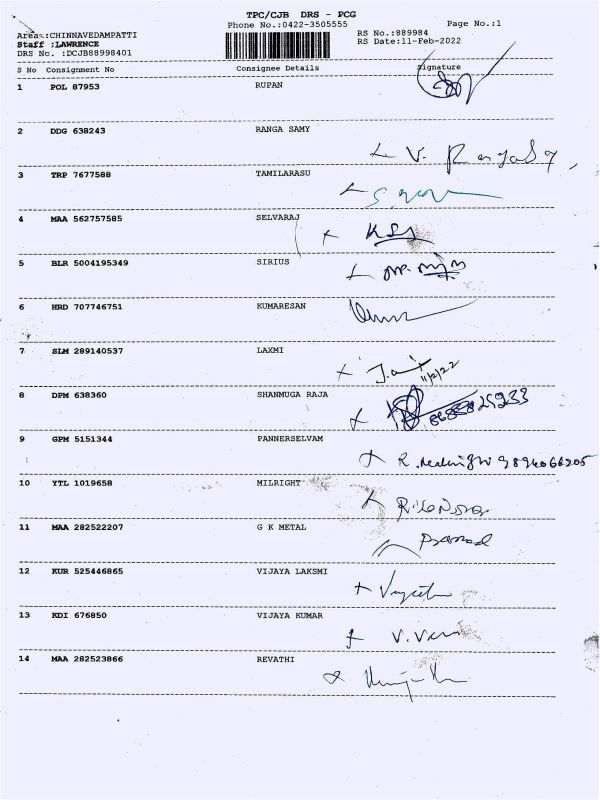 TPC/CJB DRS - PCG
Phone No.:0422-3505555
Page No.:1
Area :CHINNAVEDAMPATTI
RS No.:889984
Staff :LAWRENCE
RS Date:11-Feb-2022
DRS No. :DCJB88998401
S No Consignment No Consignee Details Signature
1 POL 87953 RUPAN
2 DDG 638243 RANGA SAMY
V.
3 TRP 7677588 TAMILARASU
4 MAA 562757585 SELVARAJ
5 BLR 5004195349 SIRIUS
6 HRD 707746751 KUMARESAN
7 SLM 289140537 LAXMI
11/2/22
8 DPM 638360 SHANMUGA RAJA
9 GPM 5151344 PANNERSELVAM
R.
10 YTL 1019658 MILRIGHT
11 MAA 282522207 G K METAL
12 KUR 525446865 VIJAYA LAKSMI
13 KDI 676850 VIJAYA KUMAR
14 MAA 282523866 REVATHI